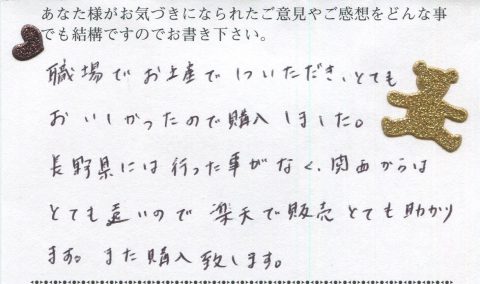 あなた様がお気づきになられたご意見やご感想をどんな事
でも結構ですのでお書き下さい。
職場でお土産で1ついただき、とても
おいしかったので購入しました。
長野県には行った事がなく、関西からは
とても遠いので楽天で販売とても助かり
ます。また購入致します。